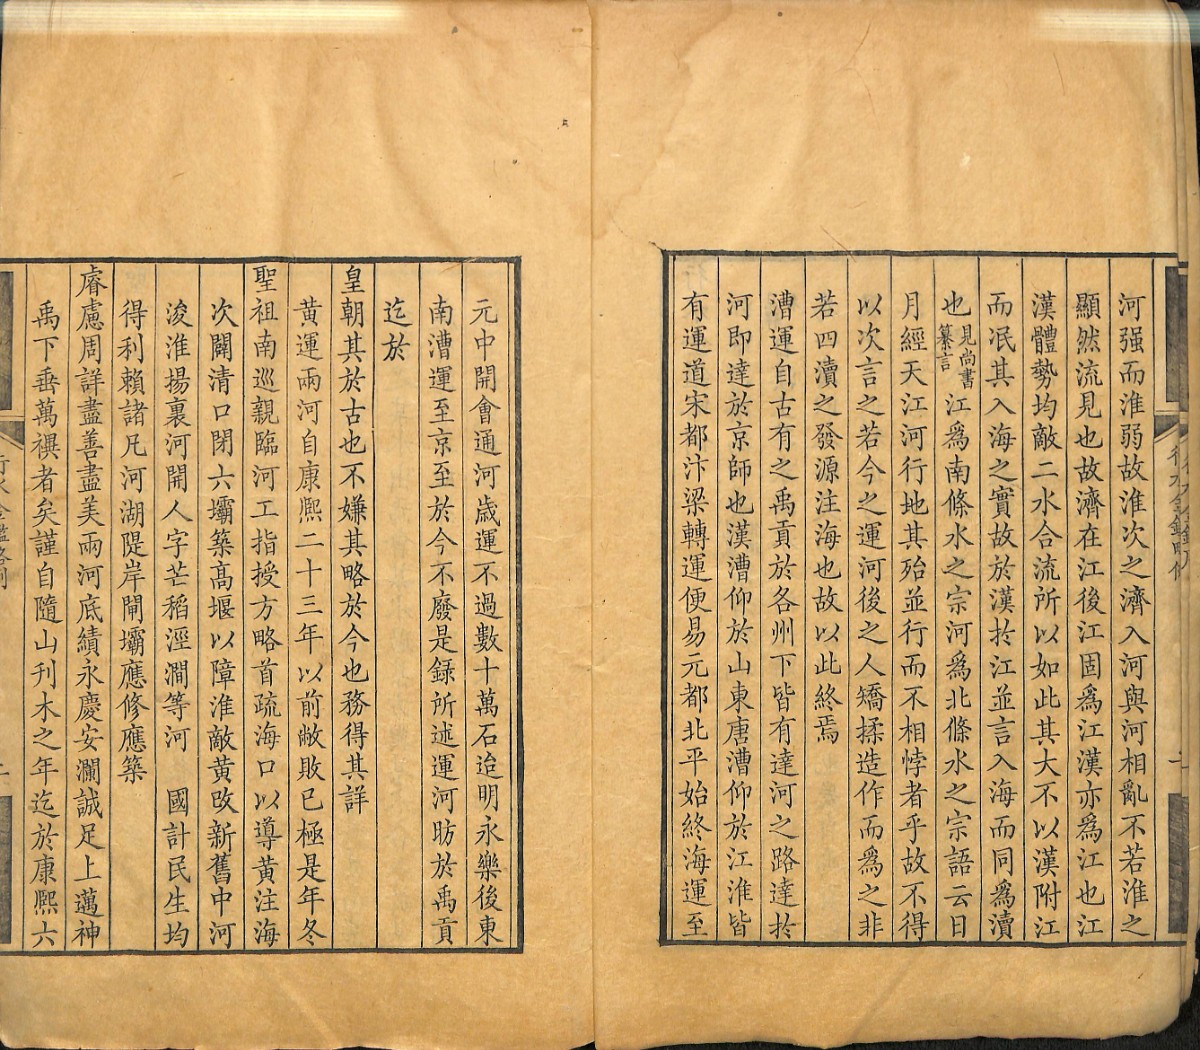 河强而淮弱故淮次之濟入河與河相亂不若淮之
顯然流見也故濟在江後江固爲江漢亦爲江也江
漢體勢均敵二水合流所以如此其大不以漢附江
而泯其入海之實故於漢扵江並言入海而同爲瀆
也見尚書纂言江爲南條水之宗河爲北條水之宗語云日
月經天江河行地其殆並行而不相悖者乎故不得
以次言之若今之運河後之人矯揉造作而爲之非
若四瀆之發源注海也故以此終焉
漕運自古有之禹貢於各州下皆有達河之路達扵
河即達於京師也漢漕仰於山東唐漕仰於江淮皆
有運道宋都汴梁轉運便易元都北平始終海運至
元中開會通河歲運不過數十萬石迨明永樂後東
南漕運至京至於今不廢是録所述運河昉於禹貢
迄於
皇朝其於古也不嫌其略於今也務得其詳
黃運兩河自康熙二十三年以前敝敗已極是年冬
聖祖南巡親臨河工指授方略首疏海口以導黃注海
次闢清口閉六壩築高堰以障淮敵黃改新舊中河
浚淮揚裏河開人字芒稻涇澗等河 國計民生均
得利賴諸凡河湖隄岸閘壩應修應築
睿慮周詳盡善盡美兩河底績永慶安瀾誠足上邁神
禹下垂萬禩者矣謹自隨山刊木之年迄於康熙六